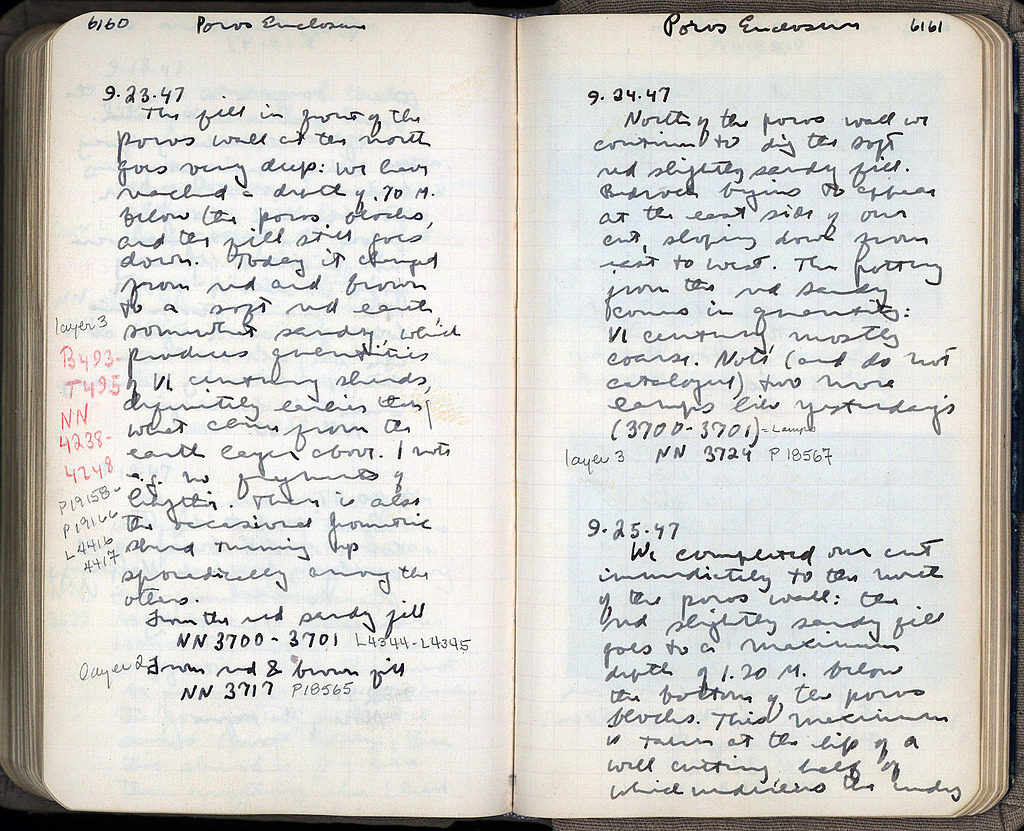 6160 Poros Enclosure
9.23.47
The fill in front of the
poros wall at the north
goes very deep: we have
reached a depth of .70 M.
below the poros blocks,
and the fill still goes
down. Today it changed
from red and brown
to a soft red earth,
layer 3
somewhat sandy, which
B493-
T495
NN
4238-
4248
P19158-
P19166
L4416
4417
produces quantities
of VI century sherds,
definitely earlier than
what came from the
earth layer above. I note
e.g. no fragments of
. There is also
the occasional geometric
sherd turning up
sporadically among the
others.
From the red sandy fill
NN 3700 - 3701 L4344-L4345
layer 2 From red & brown fill
NN 3717 P18565
Poros Enclosure 6161
9.24.47
North of the poros wall we
continue to dig the soft
red slightly sandy fill.
Bedrock begins to appear
at the east side of our
cut, sloping down from
east to west. The pottery
from the red sandy
comes in quantity:
VI century, mostly
coarse. Note (and do not
catalogue) two more
lamps like yesterday's
(3700-3701) - Lamps
layer 3 NN 3724 P 18567
9.25.47
We completed our cut
immediately to the north
of the poros wall: the
red slightly sandy fill
goes to a maximum
depth of 1.20 M. below
the bottom of the poros
blocks. This maximum
is taken at the lip of a
well cutting, half of
which underlies the sandy